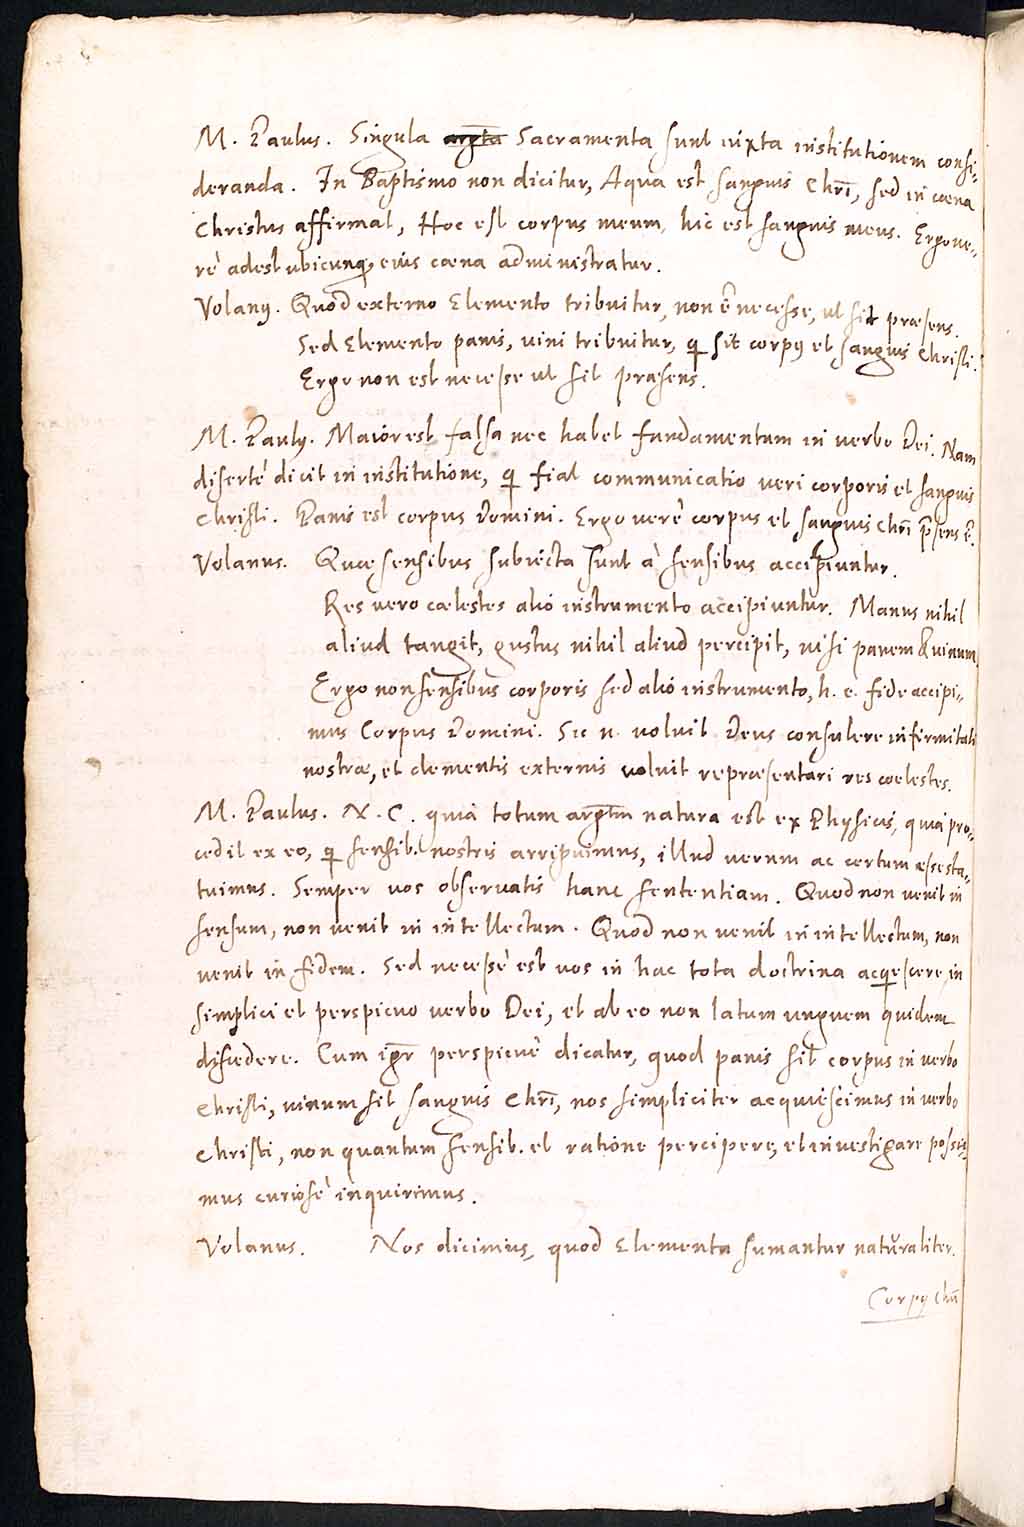 M. Paulus. Singula argta Sacramenta sunt iuxta institutionem consi-
deranda. In Baptismo non dicitur, Aqua est sanguis Chrī, sed in cœna
Christus affirmat, Hoc est corpus meum, hic est sanguis meus. Ergo ve-
rè adest ubicunq, eius cœna administratur.
Volanꝰ. Quod externo Elemento tribuitur, non ē necesse, ut sit præsens.
Sed Elemento panis, vini tribuitur, ꝙ sit corpꝰ et sanguis Christi.
Ergo non est necesse ut sit præsens.
M. Paulꝰ. Maior est falsa nec habet fundamentum in verbo Dei. Nam
disertè dicit in institutione, ꝙ fiat communicatio veri corporis et sanguis
Christi. Panis est corpus Domini. Ergo verè corpus et sanguis Chrī p̄sens ē.
Volanus. Quæ sensibus subiecta sunt à sensibus accipiuntur.
Res vero cælestes alio instrumento accipiuntur. Manus nihil
aliud tangit, gustus nihil aliud percipit, nisi panem & vinum.
Ergo non sensibus corporis sed alio instrumento, h. e. fide accipi-
mus Corpus Domini. Sic n. voluit Deus consulere infirmitati
nostræ, et elementis externis voluit repræsentari res cœlestes.
M. Paulus. N. C. quia totum argtm natura est ex Physicis, quia pro-
cedit ex eo, ꝙ sensib. nostris arripuimus, illud verum ac certum esse sta-
tuimus. Semper vos observatis hanc sententiam. Quod non venit in
sensum, non venit in intellectum. Quod non venit in intellectum, non
venit in fidem. Sed necesse est vos in hac tota doctrina acquiescere, in
simplici et perspicuo verbo Dei, et ab eo non latum unguem quidem
discedere. Cum igr̄ perspicuè dicatur, quod panis sit corpus in verbo
Christi, vinum sit sanguis Chrī, nos simpliciter acquiescimus in verbo
Christi, non quantum sensib. et ratione percipere, et investigare possu-
mus curiosè inquirimus.
Volanus. Nos dicimus, quod Elementa sumantur naturaliter.
Corpꝰ Chrī